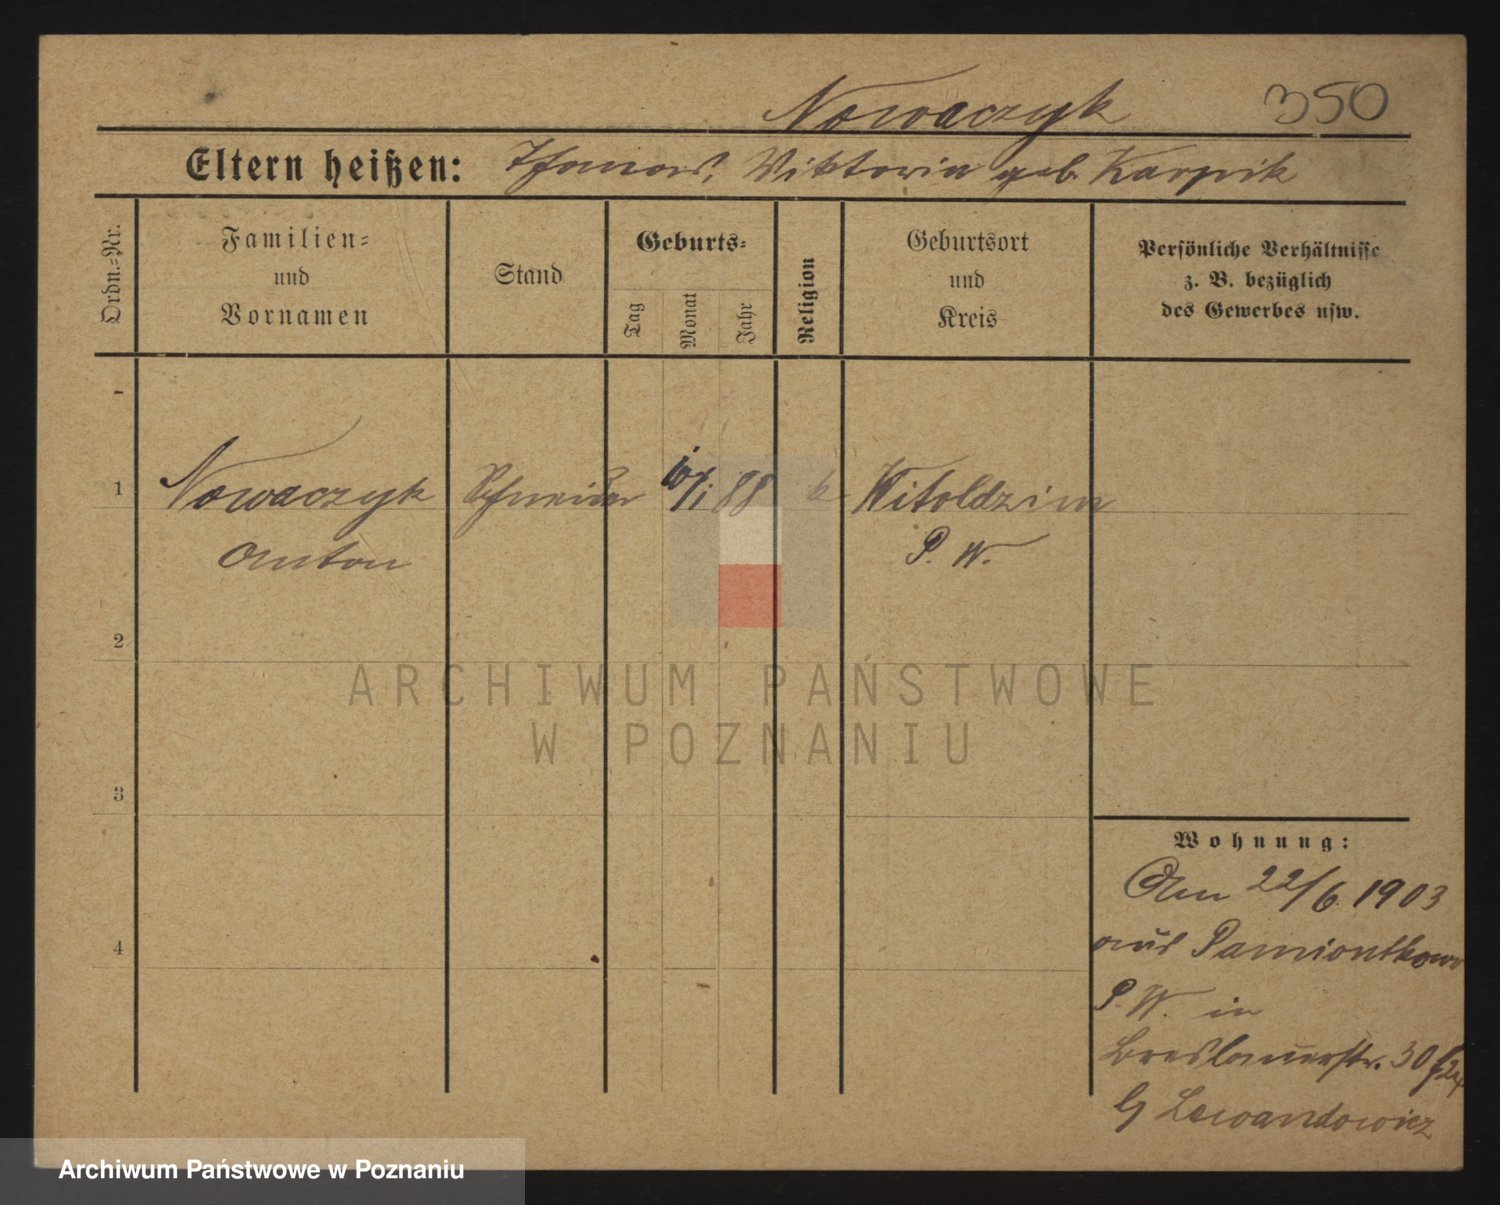 Nowaczyk 350
Eltern heißen: Thomas, Viktoria geb. Karpik
Ordn.=Nr.
Familien=
und
Vornamen
Stand
Geburts=
Tag
Monat
Jahr
Religion
Geburtsort
und
Kreis
Persönliche Verhältnisse
z. B. bezüglich
des Gewerbes usw.
1 Nowaczyk Schneider 10/1 88 k Witoldzim
Anton P. W.
2
3
4
Wohnung:
Am 22/6. 1903
aus Pamiontkowo
P. W. in
Breslauerstr. 30
Lewandowicz
ARCHIWUM PAŃSTWOWE
W POZNANIU
Archiwum Państwowe w Poznaniu